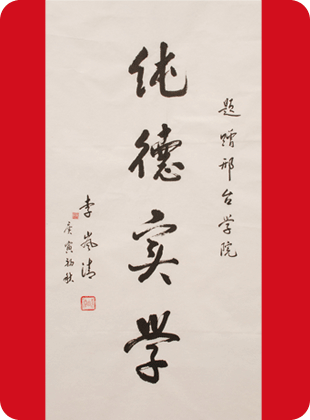 题赠邢台学院
纯德实学
李岚清
庚寅初秋